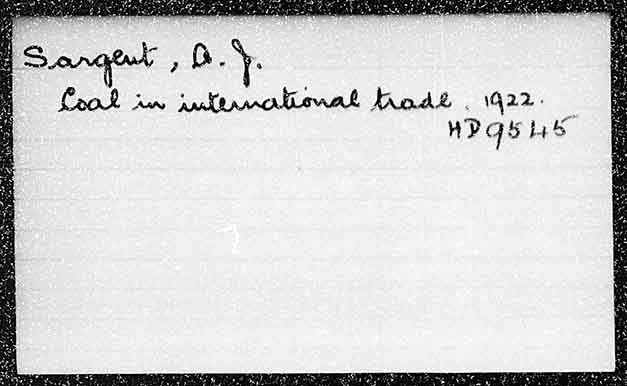 Sargent, A. J.
Coal in international trade. 1922.
HD9545